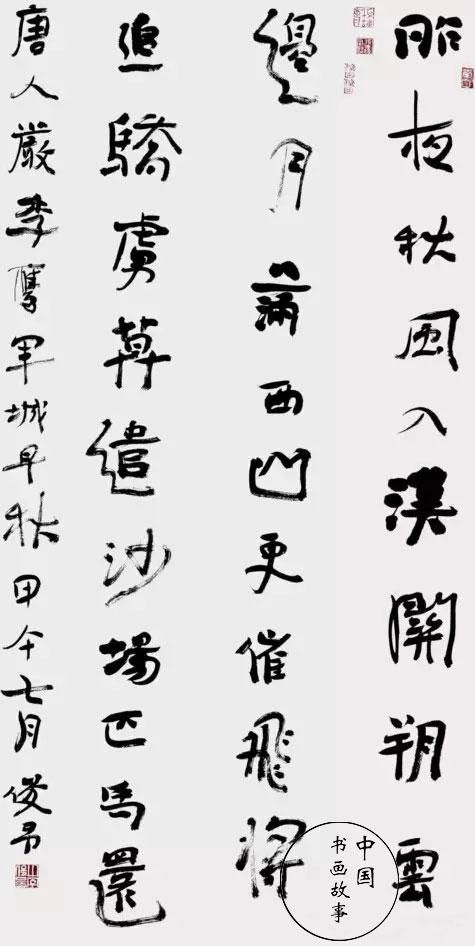 昨夜秋風入漢關朔雲
邊月滿西山更催飛將
追驕虜莫遣沙場匹馬還
唐人嚴季鷹軍城早秋甲午七月俊
中国
书画故事